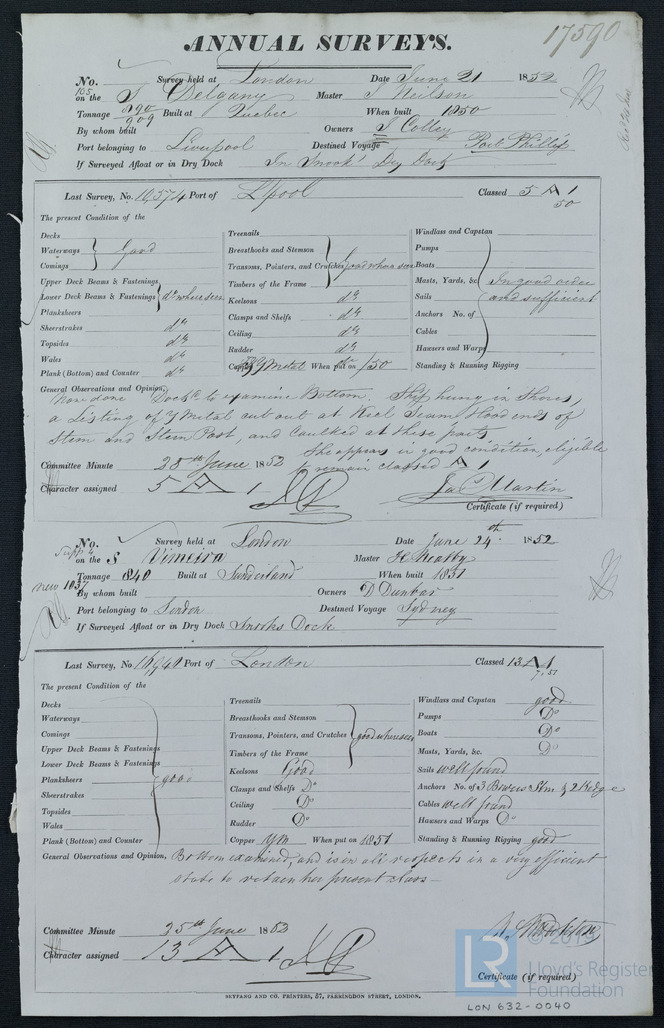 17590
ANNUAL SURVEYS.
No. Survey held at London Date June 21 1852
105 on the S Delgany Master J Neilson
Tonnage 890 909 Built at Quebec When built 1850
By whom built Owners J Colley
Port belonging to Liverpool Destined Voyage Port Phillip
If Surveyed Afloat or in Dry Dock In Snook's Dry Dock
Last Survey, No. 10574 Port of Lpool Classed 5 A 1
50
The present Condition of the
Decks
Waterways Good
Comings
Upper Deck Beams & Fastenings
Lower Deck Beams & Fastenings do where seen
Plankshears
Sheerstrakes do
Topsides do
Wales do
Plank (Bottom) and Counter do
Treenails
Breasthooks and Stemson
Transoms, Pointers, and Crutches good where seen
Timbers of the Frame
Keelsons do
Clamps and Shelfs do
Ceiling do
Rudder do
Copper Y Metal When put on /50
Windlass and Capstan
Pumps
Boats
Masts, Yards, &c. In good order
Sails and sufficient
Anchors No. of
Cables
Hawsers and Warps
Standing & Running Rigging
General Observations and Opinion, Now done Dockd to examine Bottom. Ship hung in Shores,
a Listing of Y Metal cut out at Keel Seam Hood ends of
Stem and Stern Post, and Caulked at these parts
She appears in good condition, eligible
to remain classed A 1
Committee Minute 25th June 1852
Character assigned 5 A 1 Jas Martin
Certificate (if required)
No. Survey held at London Date June 24th 1852
Supp 4 on the S Vimeira Master
Tonnage 840 Built at Sunderland When built 1851
new 1037
By whom built Owners D Dunbar
Port belonging to London Destined Voyage Sydney
If Surveyed Afloat or in Dry Dock Snooks Dock
Last Survey, No 16940 Port of London Classed 13 A 1
7.51
The present Condition of the
Decks
Waterways
Comings
Upper Deck Beams & Fastenings
Lower Deck Beams & Fastenings
Planksheers good
Sheerstrakes
Topsides
Wales
Plank (Bottom) and Counter
Treenails
Breasthooks and Stemson
Transoms, Pointers, and Crutches good where seen
Timbers of the Frame
Keelsons Good
Clamps and Shelfs Do
Ceiling Do
Rudder Do
Copper YM When put on 1851
Windlass and Capstan good
Pumps Do
Boats Do
Masts, Yards, &c. Do
Sails well found
Anchors No. of 3 Bowers Stm & 2 Kedge
Cables well found
Hawsers and Warps Do
Standing & Running Rigging good
General Observations and Opinion, Bottom examined, and is in all respects in a very efficient
state to retain her present class—
Committee Minute 25th June 1852
Character assigned 13 A 1
Certificate (if required)
SEYFANG AND CO. PRINTERS, 57, FARRINGDON STREET, LONDON.
LR © 2019
Lloyd's Register
Foundation
LON 632-0040